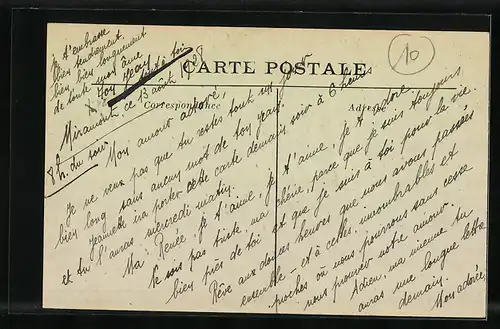 je t'embrasse
bien tendrement
bien bien longuement
de toute mon âme
Ton Jean
tout à toi
CARTE POSTALE
10
Correspondance
Adresse
Miramont, ce 13 août 1908
8 h. du soir
Mon amour adoré,
Je ne veux pas que tu restes tout un jour
bien long sans aucun mot de ton Jean.
Jeannette ira porter cette carte demain soir à 6 heures
et tu l'auras mercredi matin.
Ma Renée, je t'aime, je t'aime, je t'adore.
Ne sois pas triste, ma chérie, parce que je suis toujours
bien près de toi et que je suis à toi pour la vie.
Rêve aux douces heures que nous avons passées
ensemble et à celles, innombrables et
proches où nous pourrons sans cesse
nous prouver notre amour.
Adieu, ma mienne tu
auras une longue lettre
demain.
Mon adorée,